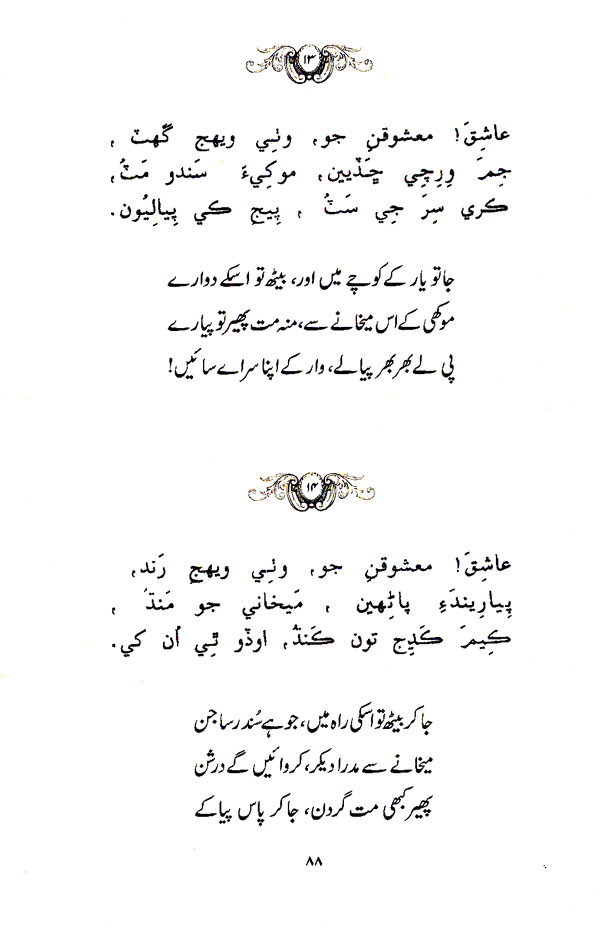 ۱۳
عاشِقَ! معشوقنِ جو، وٺي ويهج گهٽ،
جِمَ وِرِچِي ڇَڏيين، موکِيءَ سَندو مَٽُ،
ڪري سِرَ جِي سَٽُ، پِيجِ ڪي پِيالِيُون.
جا تو یار کے کوچے میں اور، بیٹھ تو اسکے دوارے
موکھی کے اس میخانے سے، منہ مت پھیر تو پیارے
پی لے بھر بھر پیالے، وار کے اپنا سر اے سائیں!
۱۴
عاشِقَ! معشوقنِ جو، وٺِي ويهج رَند،
پِيارِيندءِ پاڻِهين، مَيخاني جو مَنڌُ،
ڪِيمَ ڪَڍِج تون ڪَنڌُ، اوڏو ٿِي اُن کي.
جا کر بیٹھ تو اسکی راہ میں، جو ہے سُندر ساجن
میخانے سے مدرا دیکر، کروائیں گے درشن
پھیر کبھی مت گردن، جا کر پاس پیا کے
۸۸